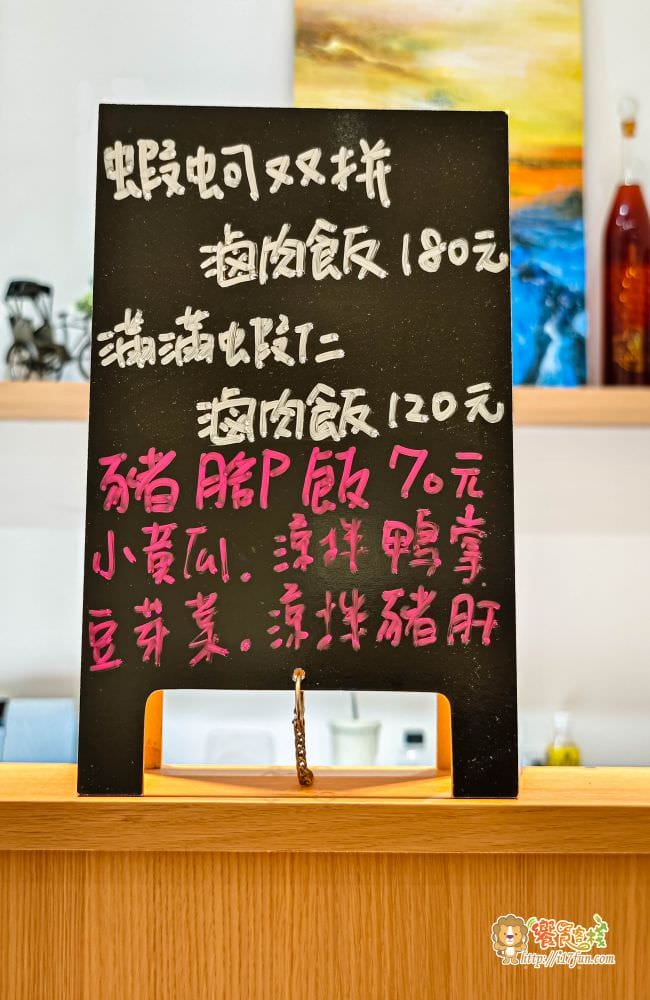 蝦蚵双拼
滷肉飯180元
滿滿蝦仁
滷肉飯120元
豬腳飯70元
小黃瓜.涼拌鴨掌
豆芽菜.涼拌豬肝
饗饕客棧
http://i17fun.com